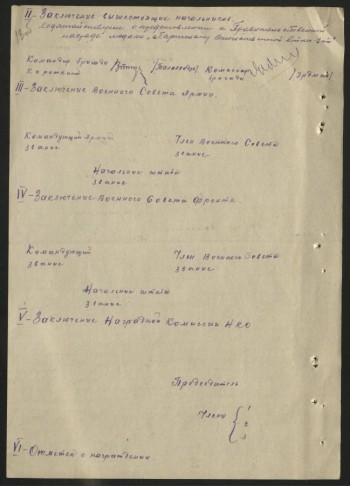 II - Заключение вышестоящих начальников.
с представлением к Правительственной
награде
Командир бригады
Комиссар
бригады
III - Заключение Военного Совета Армии.
Командующий Армией
звание
Член Военного Совета
звание
Начальник штаба
звание
IV - Заключение Военного Совета Фронта
Командующий
звание
Член Военного Совета
звание
Начальник штаба
звание
V - Заключение Наградной Комиссии НКО
Председатель
Члены { 1
2
3
VI - Отметка о награждении